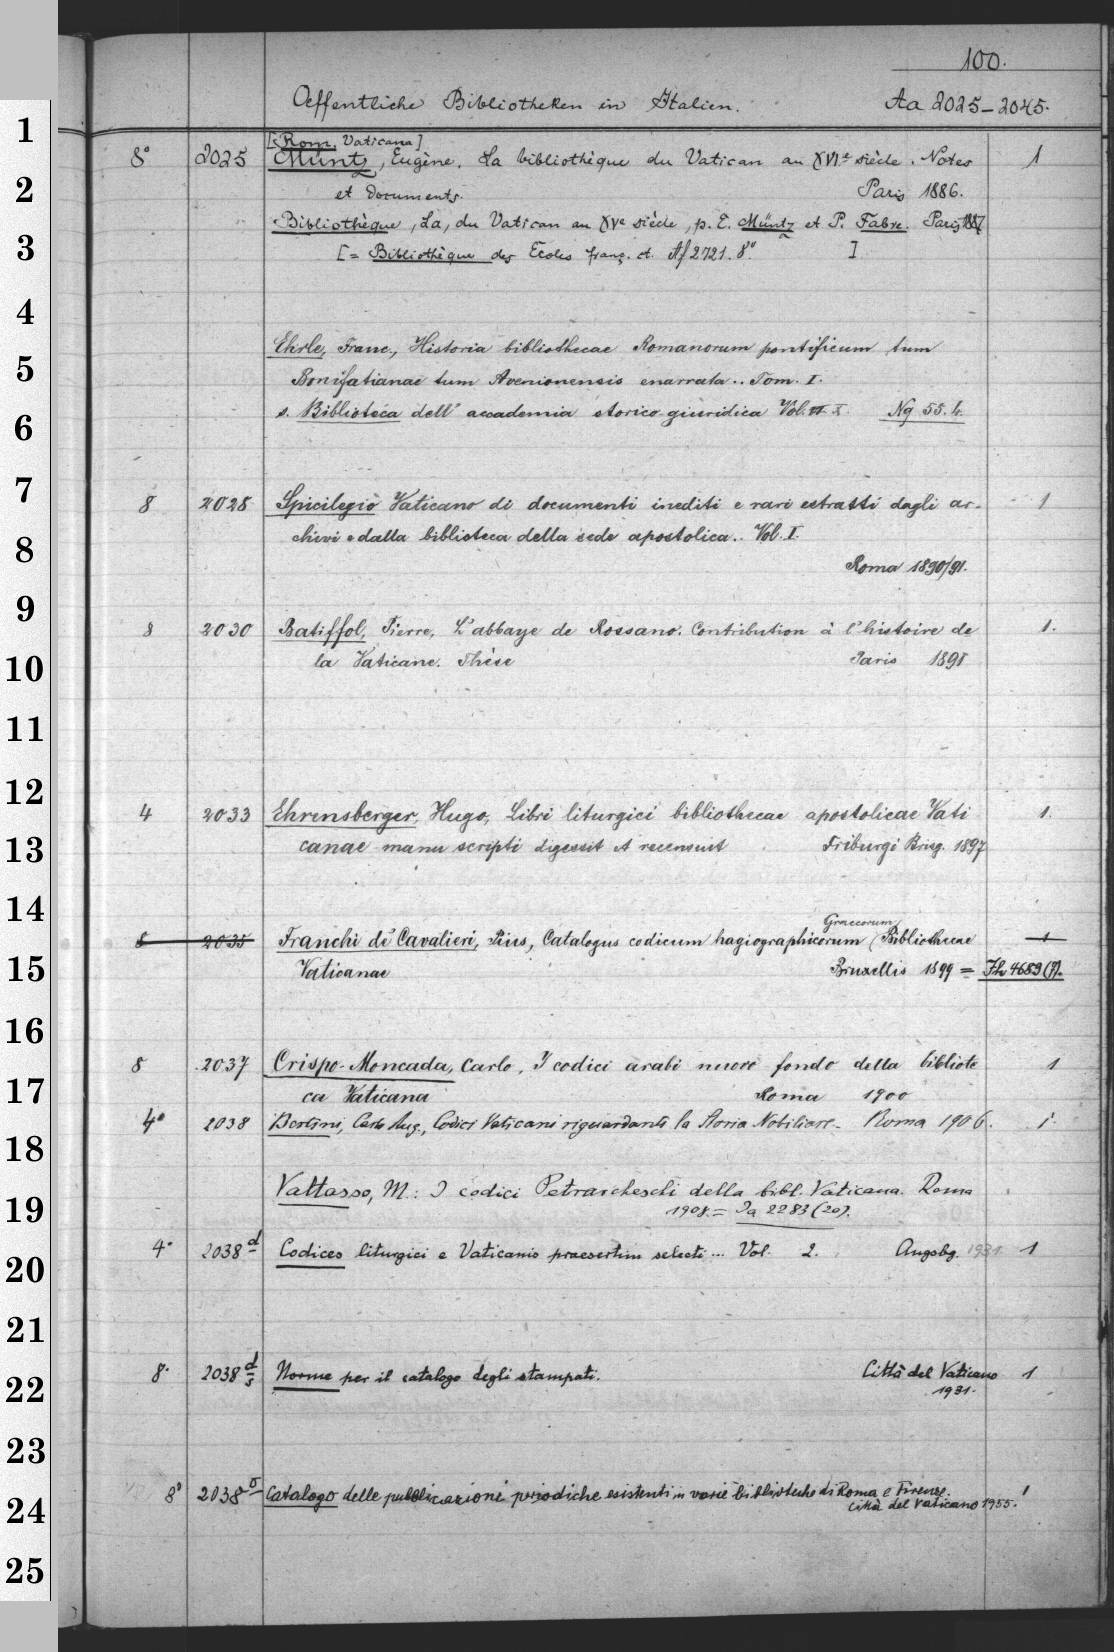 100.
Oeffentliche Bibliotheken in Italien. Aa 2025-2045.
[Rom, Vaticana]
8° 2025 Müntz, Eugène. La bibliothèque du Vatican au XVIe siècle. Notes 1
et documents. Paris 1886.
Bibliothèque, La, du Vatican au XVe siècle, p. E. Müntz et P. Fabre. Paris 1887
[= Bibliothèque des Ecoles franç. et. Af 2721. 8° ]
Ehrle, Franc., Historia bibliothecae Romanorum pontificum tum
Bonifatianae tum Avenionensis enarrata.. Tom. I.
s. Biblioteca dell' accademia storico-giuridica Vol. Ng 55. 4.
8 2028 Spicilegio Vaticano di documenti inediti e rari estratti dagli ar- 1
chivi e dalla biblioteca della sede apostolica.. Vol. I.
Roma 1890/91.
8 2030 Batiffol, Pierre, L'abbaye de Rossano. Contribution à l'histoire de 1.
la Vaticane. Thèse Paris 1891
4 2033 Ehrensberger, Hugo, Libri liturgici bibliothecae apostolicae Vati 1.
canae manu scripti digessit et recensuit Friburgi Brisg. 1897
Graecorum
8 2035 Franchi de' Cavalieri, Pius, Catalogus codicum hagiographicorum Bibliothecae 1
Vaticanae Bruxellis 1899 = 4689 (7).
8 2037 Crispo-Moncada, Carlo, I codici arabi nuovo fondo della bibliote 1
ca Vaticana Roma 1900
4° 2038 Bertini, Carlo Aug., Codici Vaticani riguardanti la Storia Nobiliare. Roma 1906. 1.
Vattasso, M.: I codici Petrarcheschi della bibl. Vaticana. Roma
1908. = 2283 (20).
4° 2038 d Codices liturgici e Vaticanis praesertim selecti ... Vol. 2. Augsbg. 1931 1
8° 2038 d/s Norme per il catalogo degli stampati. Città del Vaticano 1
1931.
8° 2038 Catalogo delle pubblicazioni periodiche esistenti in varie biblioteche di Roma e Firenze. 1
Città del Vaticano 1955.
1
2
3
4
5
6
7
8
9
10
11
12
13
14
15
16
17
18
19
20
21
22
23
24
25